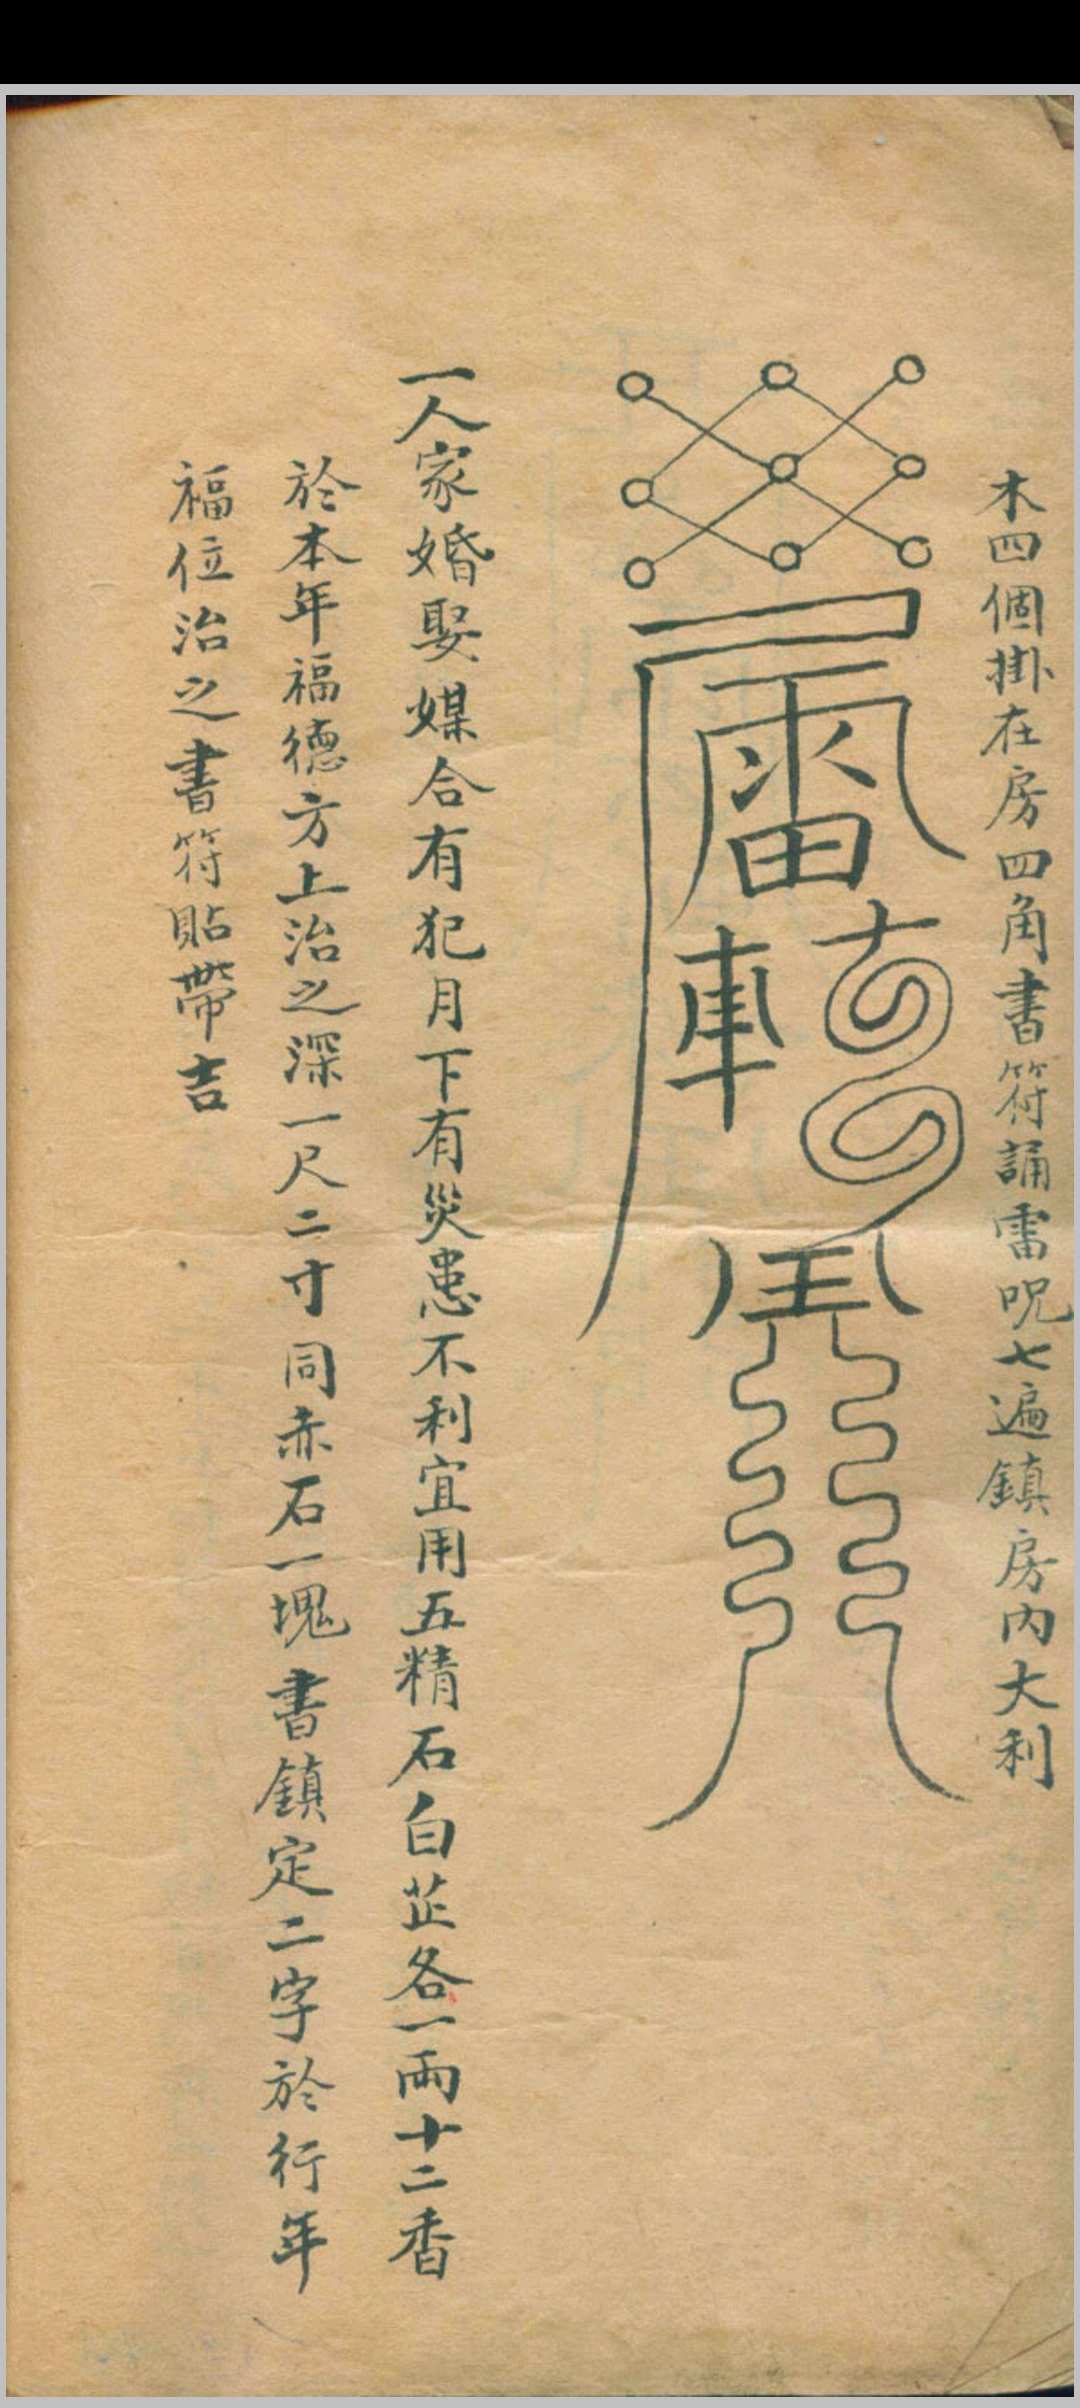 木四個掛在房四角書符誦雷呪七遍鎮房內大利
雷
車
一人家婚娶媒合有犯月下有災患不利宜用五精石白芷各一兩十二香
於本年福德方上治之深一尺二寸同赤石一塊書鎮定二字於行年
福位治之書符貼帶吉